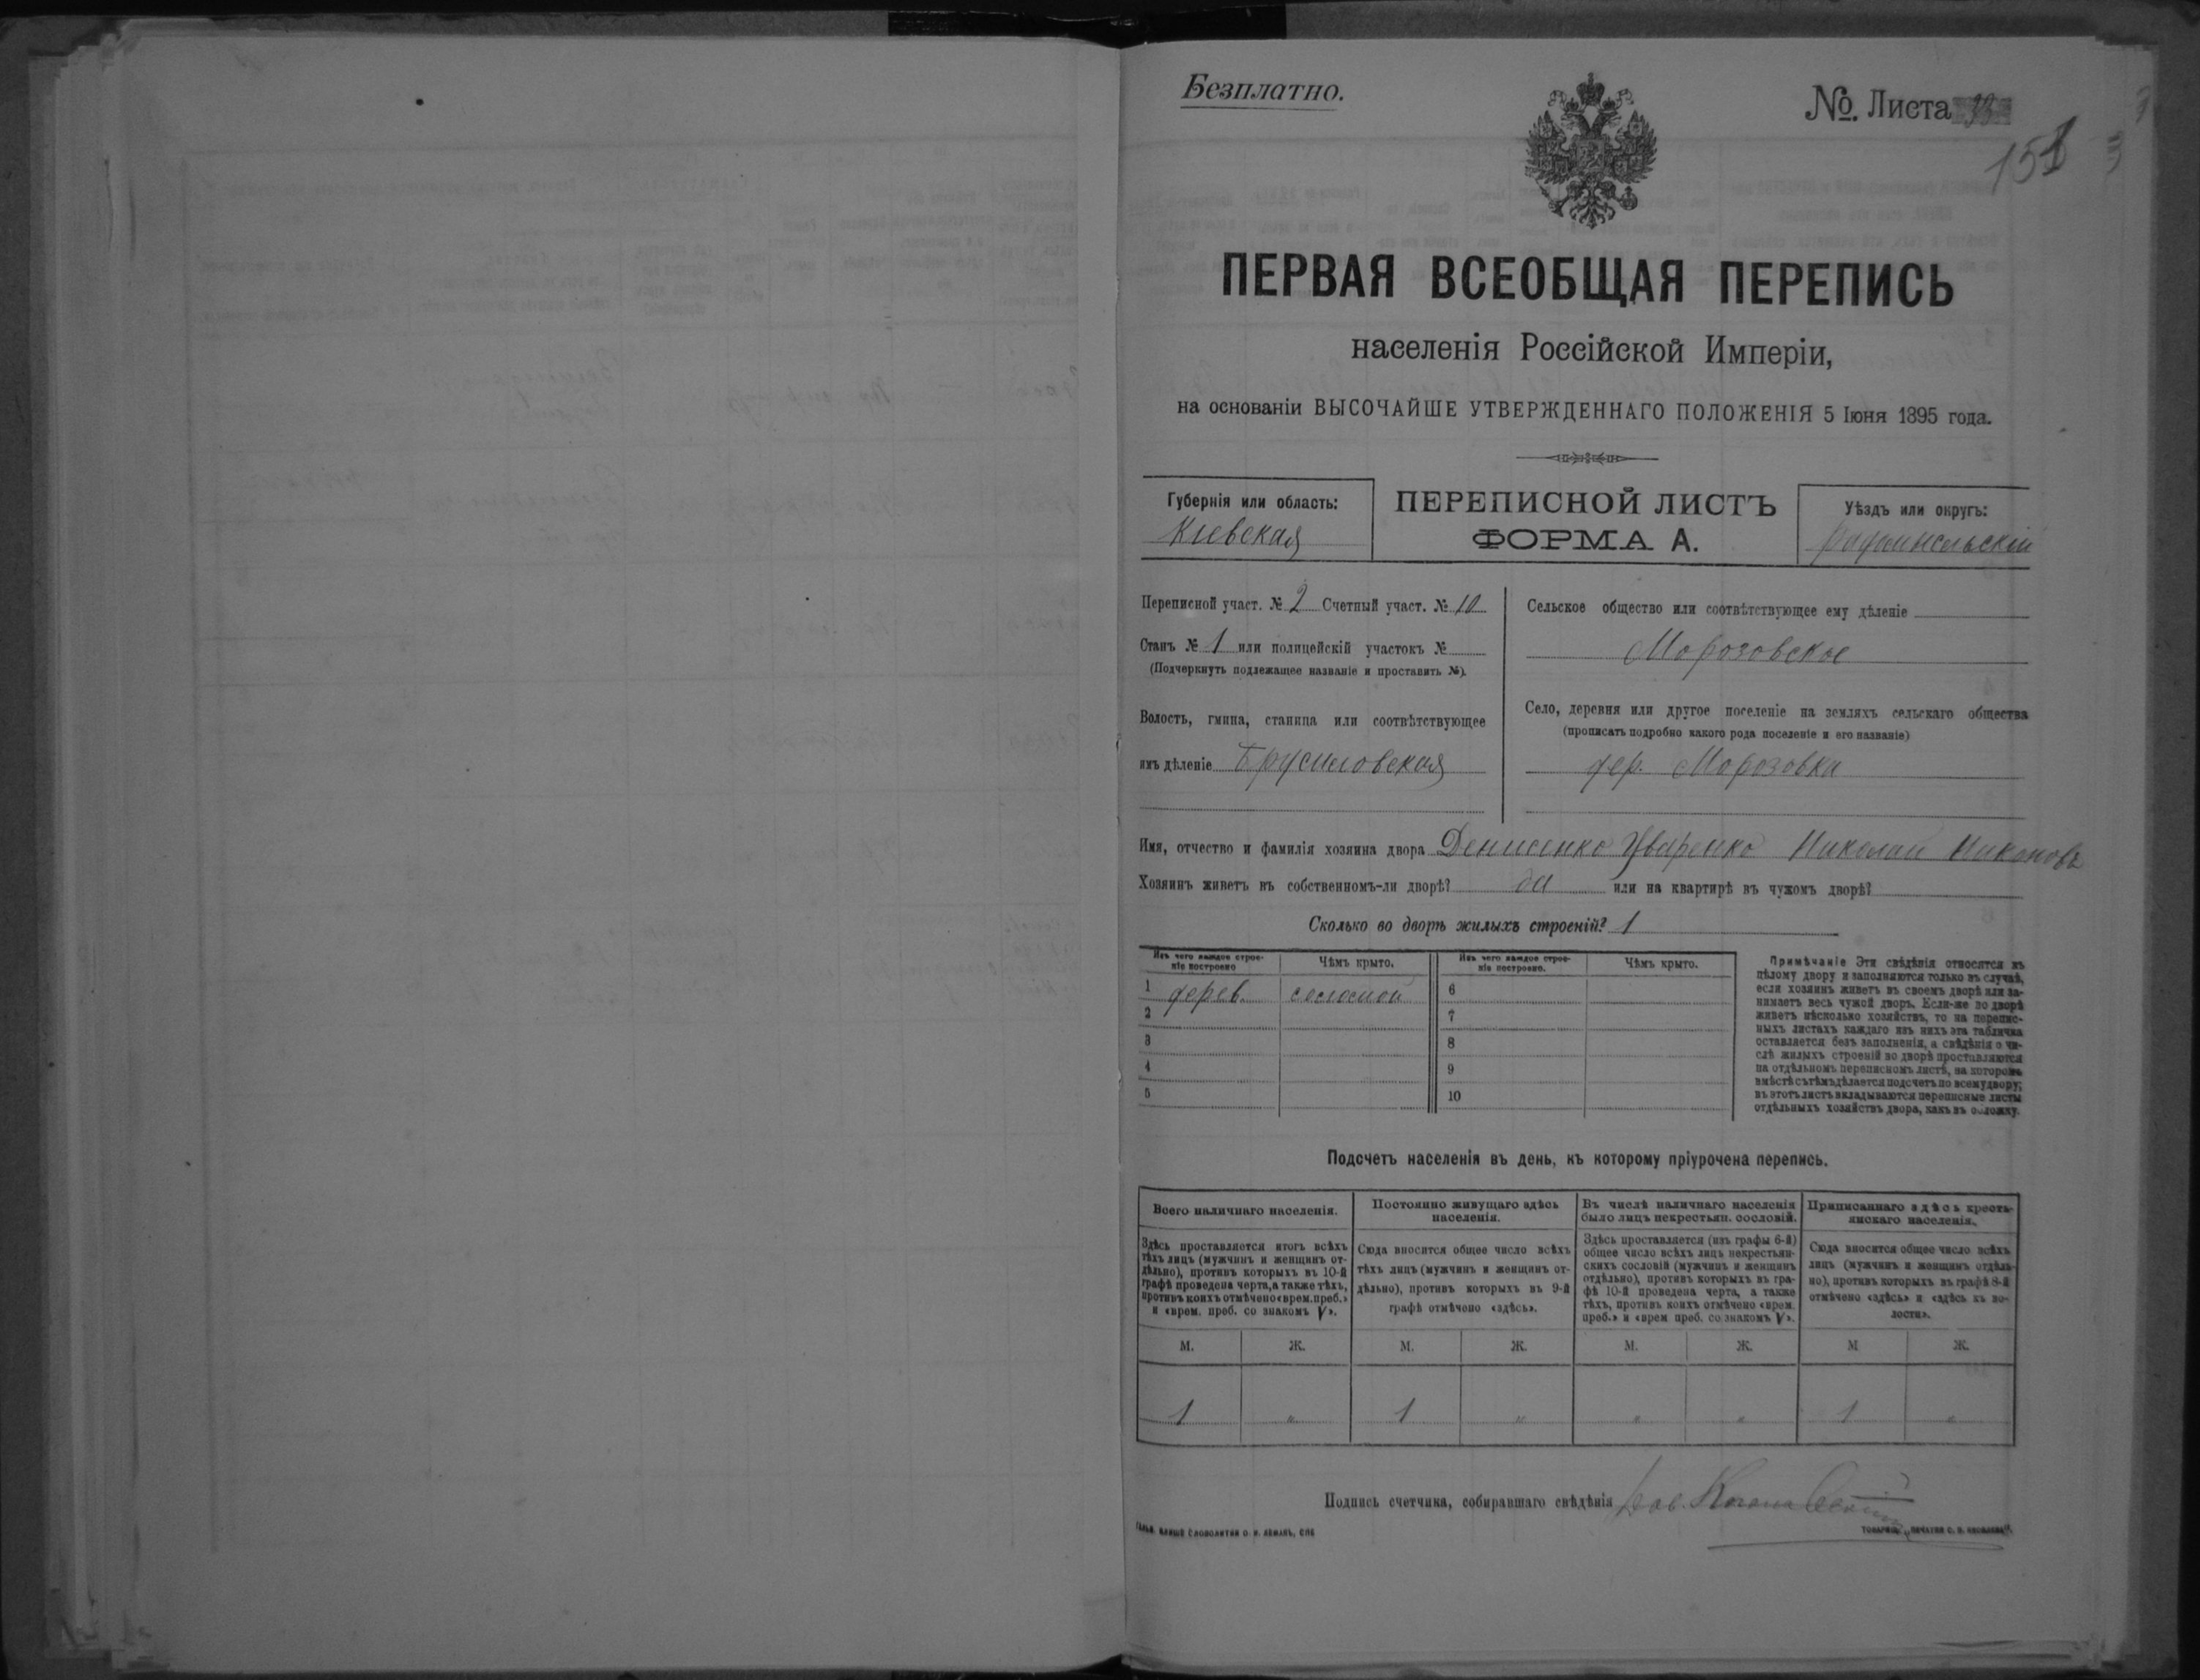 Безплатно.
№. Листа
151
ПЕРВАЯ ВСЕОБЩАЯ ПЕРЕПИСЬ
населенія Россійской Имперіи,
на основаніи ВЫСОЧАЙШЕ УТВЕРЖДЕННАГО ПОЛОЖЕНІЯ 5 Іюня 1895 года.
Губернія или область:
Кіевская
ПЕРЕПИСНОЙ ЛИСТЪ
ФОРМА А.
Уѣздъ или округъ:
Радомысльскій
Переписной участ. № 2 Счетный участ. № 10
Станъ № 1 или полицейскій участокъ №
(Подчеркнуть подлежащее названіе и проставить №).
Волость, гмина, станица или соотвѣтствующее
имъ дѣленіе Брусиловская
Сельское общество или соотвѣтствующее ему дѣленіе
Морозовское
Село, деревня или другое поселеніе на земляхъ сельскаго общества
(прописать подробно какого рода поселеніе и его названіе)
дер. Морозовка
Имя, отчество и фамилія хозяина двора Денисенко Уваренко Николай Никоновъ
Хозяинъ живетъ въ собственномъ-ли дворѣ? да или на квартирѣ въ чужомъ дворѣ?
Сколько во дворѣ жилыхъ строеній? 1
Изъ чего каждое строе-
ніе построено
Чѣмъ крыто.
Изъ чего каждое строе-
ніе построено.
Чѣмъ крыто.
1 дерев. соломой 6
2 7
3 8
4 9
5 10
Примѣчаніе Эти свѣдѣнія относятся къ
цѣлому двору и заполняются только въ случаѣ,
если хозяинъ живетъ въ своемъ дворѣ или за-
нимаетъ весь чужой дворъ. Если-же во дворѣ
живетъ нѣсколько хозяйствъ, то на перепис-
ныхъ листахъ каждаго изъ нихъ эта табличка
оставляется безъ заполненія, а свѣдѣнія о чи-
слѣ жилыхъ строеній во дворѣ проставляются
на отдѣльномъ переписномъ листѣ, на которомъ
вмѣстѣ съ тѣмъ дѣлается подсчетъ по всему двору;
въ этотъ листъ вкладываются переписные листы
отдѣльныхъ хозяйствъ двора, какъ въ обложку.
Подсчетъ населенія въ день, къ которому пріурочена перепись.
Всего наличнаго населенія.
Здѣсь проставляется итогъ всѣхъ
тѣхъ лицъ (мужчинъ и женщинъ от-
дѣльно), противъ которыхъ въ 10-й
графѣ проведена черта, а также тѣхъ,
противъ коихъ отмѣчено «врем. преб.»
и «врем. преб. со знакомъ V».
Постоянно живущаго здѣсь
населенія.
Сюда вносится общее число всѣхъ
тѣхъ лицъ (мужчинъ и женщинъ от-
дѣльно), противъ которыхъ въ 9-й
графѣ отмѣчено «здѣсь».
Въ числѣ наличнаго населенія
было лицъ некрестьян. сословій.
Здѣсь проставляется (изъ графы 6-й)
общее число всѣхъ лицъ некрестьян-
скихъ сословій (мужчинъ и женщинъ
отдѣльно), противъ которыхъ въ гра-
фѣ 10-й проведена черта, а также
тѣхъ, противъ коихъ отмѣчено «врем.
преб.» и «врем преб. со знакомъ V».
Приписаннаго здѣсь кресть-
янскаго населенія.
Сюда вносится общее число всѣхъ
лицъ (мужчинъ и женщинъ отдѣль-
но), противъ которыхъ въ графѣ 8-й
отмѣчено «здѣсь» и «здѣсь къ во-
лости».
М. Ж. М. Ж. М. Ж. М Ж.
1 " 1 " " " 1 "
Подпись счетчика, собиравшаго свѣдѣнія